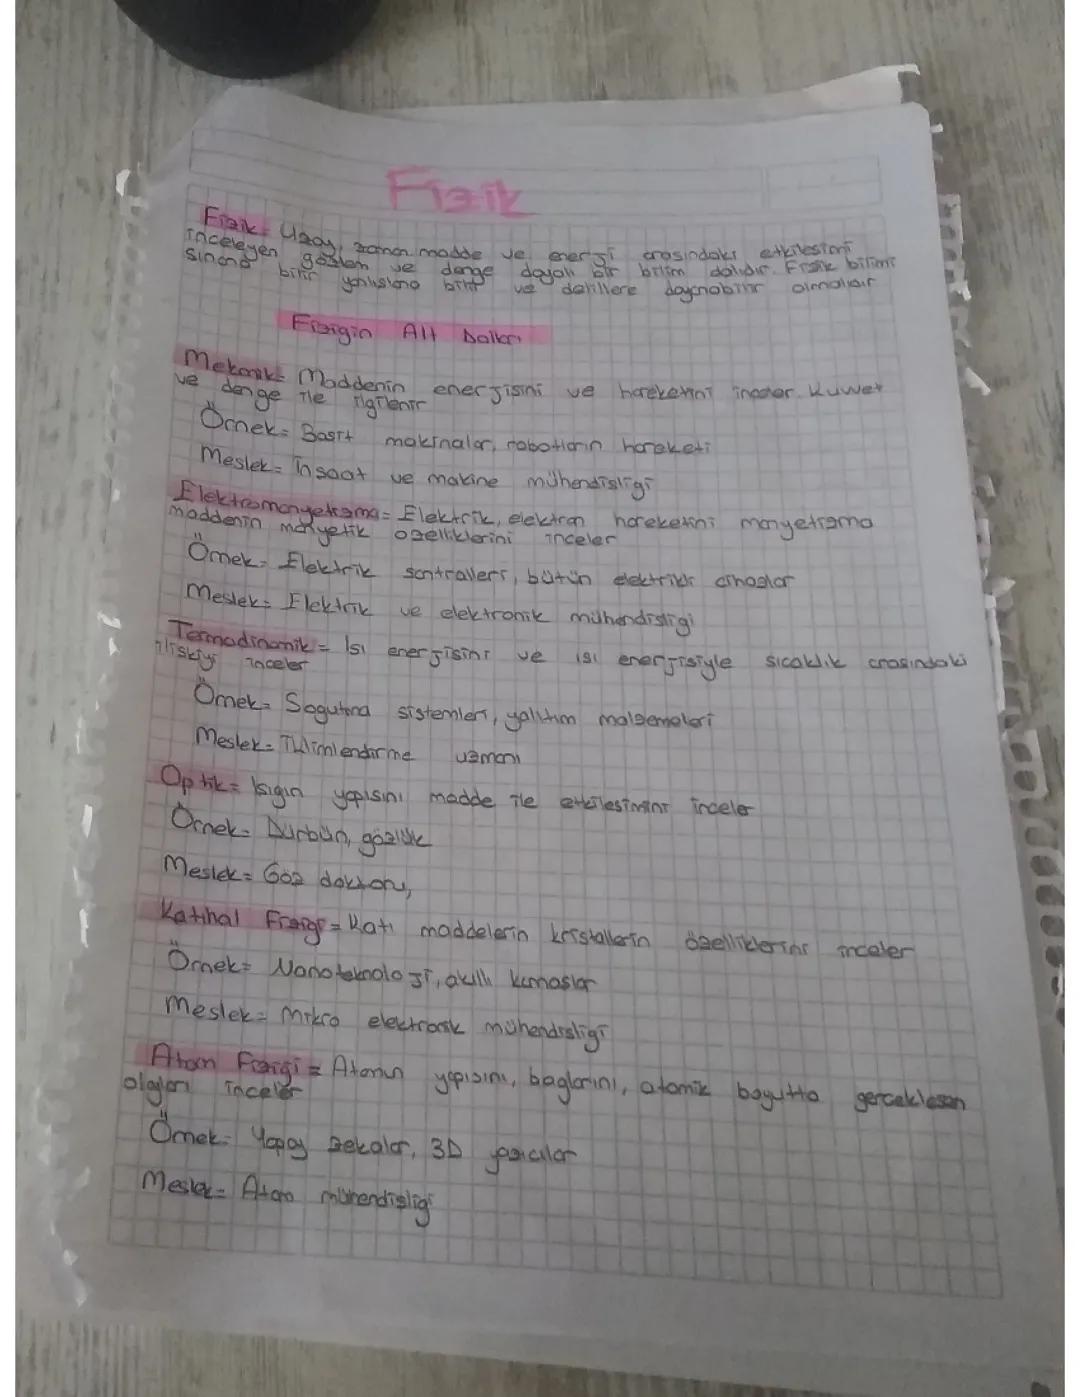 Fizik
Fizik= Uzay, zaman madde ve enerji arasındaki etkileşimi
inceleyen gözlem ve denge dayalı bir bilim dalıdır. Fizik bilimi
sınana bilir yanlışlana bilir ve delillere dayanabilir olmalıdır
Fiziğin Alt Dalları
Mekanik= Maddenin enerjisini ve hareketini inceler. Kuvvet
ve denge ile ilgilenir
Örnek= Basit makinalar, robotların hareketi
Meslek= İnşaat ve makine mühendisliği
Elektromanyetizma= Elektrik, elektron hareketini manyetizma
maddenin manyetik özelliklerini inceler
Örnek= Elektrik santralleri, bütün elektrikli cihazlar
Meslek= Elektrik ve elektronik mühendisliği
Termodinamik= Isı enerjisini ve ısı enerjisiyle sıcaklık arasındaki
ilişkiyi inceler
Örnek= Soğutma sistemleri, yalıtım malzemeleri
Meslek= uzmanı
Optik= Işığın yapısını madde ile etkileşimini inceler
Örnek= Dürbün, gözlük
Meslek= Göz doktoru,
Katıhal Fiziği= Katı maddelerin kristallerin özelliklerini inceler
Örnek= Nanoteknoloji, akıllı kumaşlar
Meslek= Mikro elektronik mühendisliği
Atom Fiziği= Atomun yapısını, bağlarını, atomik boyutta gerçekleşen
olayları inceler
Örnek= Yapay zekalar, 3D yazıcılar
Meslek= Atom mühendisliği